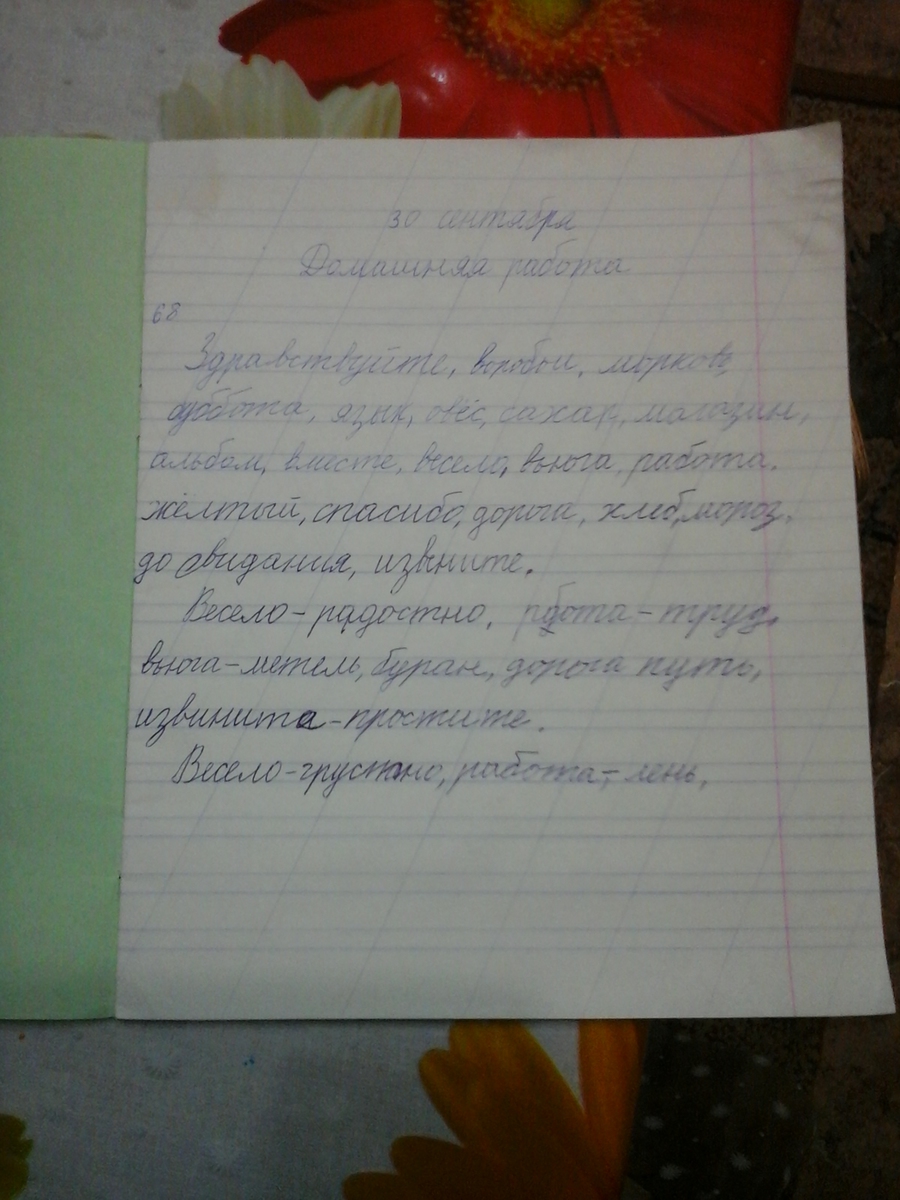 30 сентября
Домашняя работа
68
Здравствуйте, воробьи, морковь,
суббота, язык, овёс, сахар, магазин,
альбом, вместе, весело, вьюга, работа,
жёлтый, спасибо, дорога, хлеб, мороз,
до свидания, извините.
Весело-радостно, работа-труд,
вьюга-метель, буран, дорога путь,
извините-простите.
Весело-грустно, работа-лень.